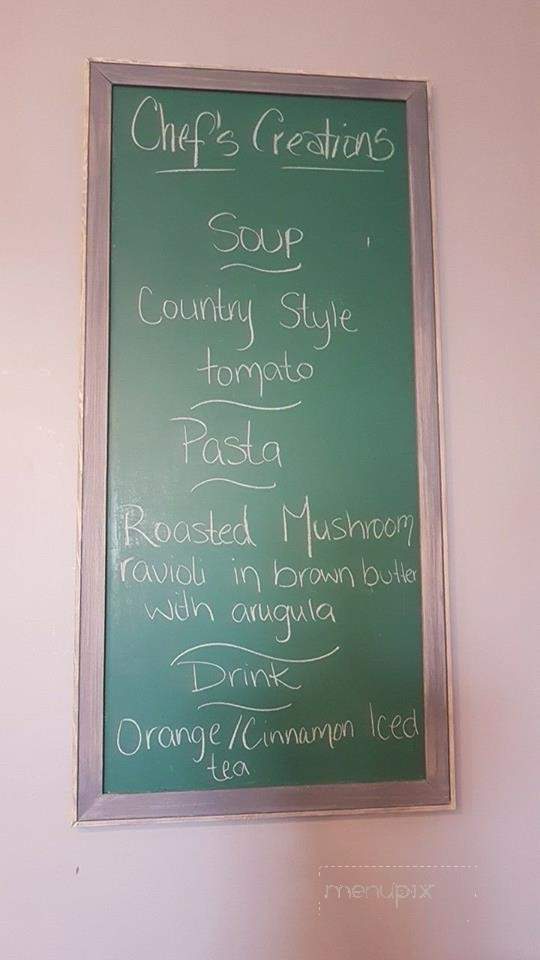 Chef's Creations
Soup
Country Style
tomato
Pasta
Roasted Mushroom
ravioli in brown butter
with arugula
Drink
Orange/Cinnamon Iced
tea
menupix